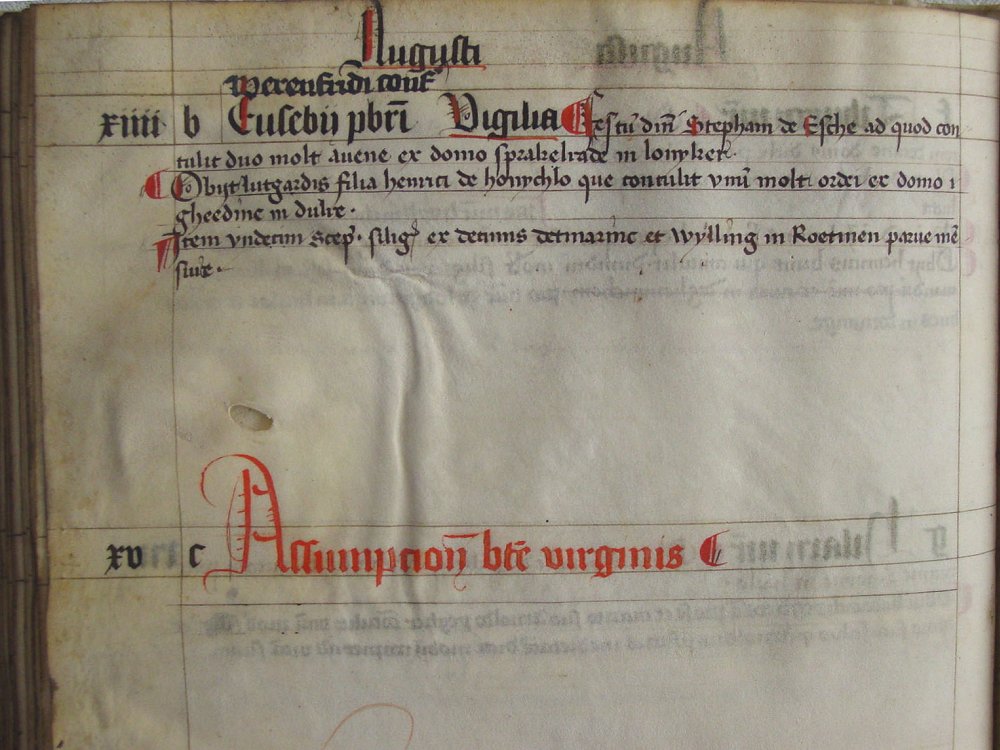 Augusti
Werenfridi conf
xiiii b Eusebii pbri Vigilia Festu dni Stephani de Esche ad quod con
tulit duo molt avene ex domo sprakelrade in lonyker.
Obijt lutgardis filia henrici de honychlo que contulit vnu molt ordei ex domo
gheedinc in dulre.
Item vndecim scep. silig ex decimis detmarinc et wylling in Roetmen parue me
sure.
xv c Assumpcion bte virginis